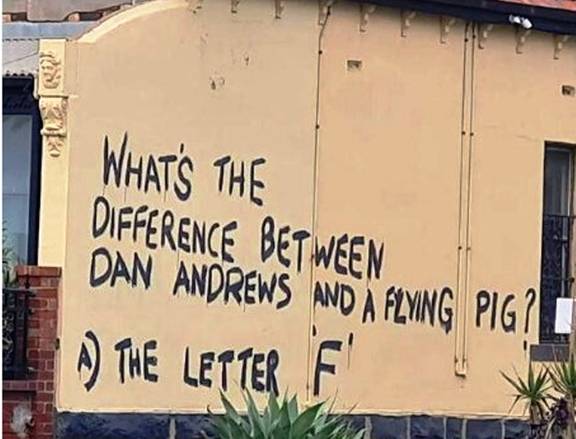 WHAT'S THE
DIFFERENCE BETWEEN
DAN ANDREWS AND A FLYING PIG?
A) THE LETTER 'F'